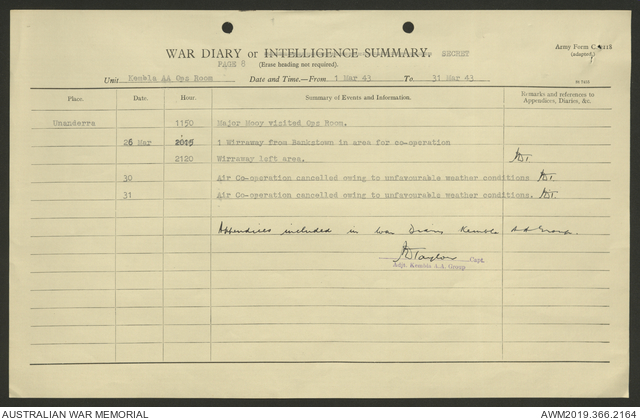 WAR DIARY or INTELLIGENCE SUMMARY. SECRET
Army Form C.2118
(adapted)
PAGE 8 (Erase heading not required).
Unit Kembla AA Ops Room Date and Time.—From 1 Mar 43 To 31 Mar 43
Place. Date. Hour. Summary of Events and Information. Remarks and references to
Appendices, Diaries, &c.
Unanderra 1150 Major Mooy visited Ops Room.
26 Mar 2015 1 Wirraway from Bankstown in area for co-operation
2120 Wirraway left area.
30 Air Co-operation cancelled owing to unfavourable weather conditions
31 Air Co-operation cancelled owing to unfavourable weather conditions.
Appendices included in War Diary Kembla AA Group.
Taylor Capt
Adjt. Kembla A.A. Group
AUSTRALIAN WAR MEMORIAL AWM2019.366.2164